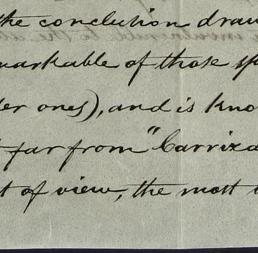 the conclusion draw
markable of those sp
er ones), and is kno
t far from "Carriza
t of view, the most